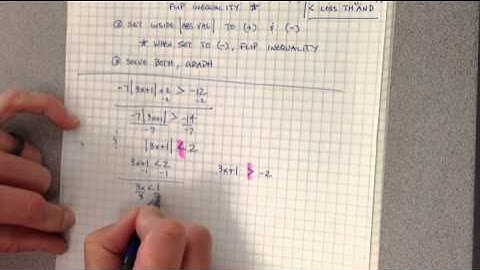 < LESS TH AND
FLIP INEQUALITY *
② SET INSIDE |ABS VAL| TO (+) & (-)
* WHEN SET TO (-), FLIP INEQUALITY
③ SOLVE BOTH, GRAPH
-7|3x+1| + 2 > -12
-2 -2
-7|3x+1| > -14
-7 -7
|3x+1| < 2
3x+1 < 2 3x+1 > -2
-1 -1
3x < 1
3